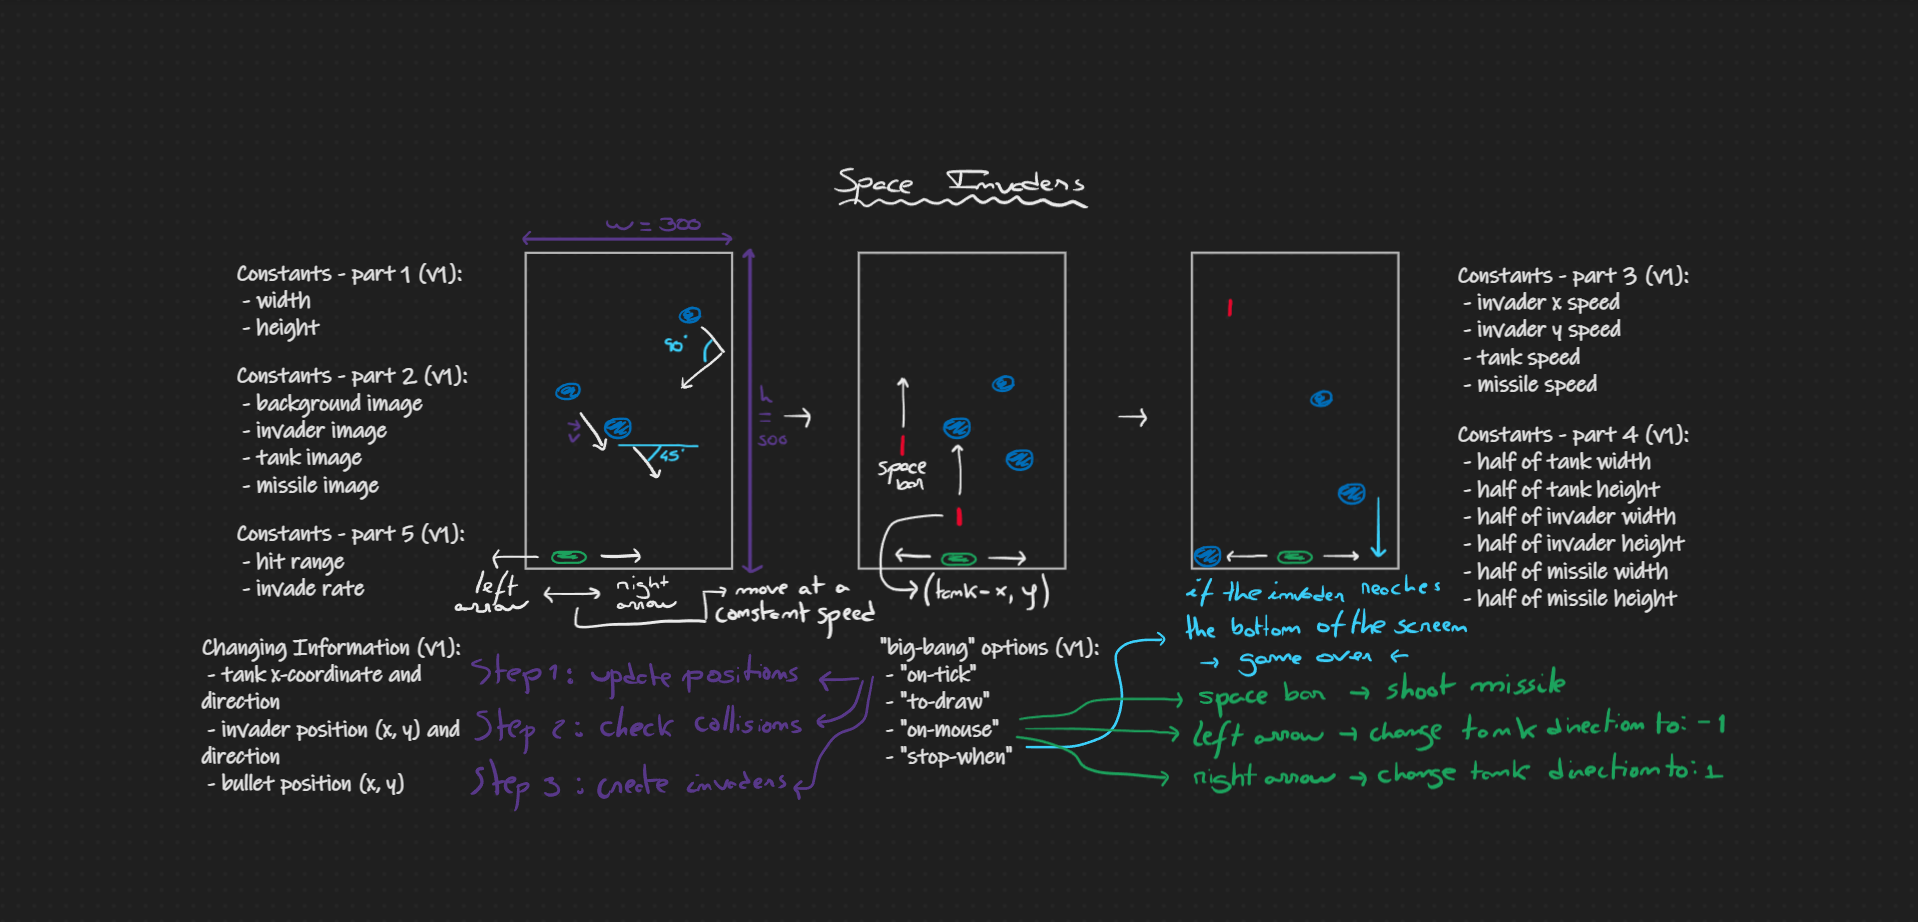 Space Invaders
w = 300
Constants - part 1 (v1):
- width
- height
Constants - part 2 (v1):
- background image
- invader image
- tank image
- missile image
Constants - part 5 (v1):
- hit range
- invade rate
90°
v
45°
h
=
500
left
arrow
right
arrow
move at a
constant speed
space
bar
(tank-x, y)
Constants - part 3 (v1):
- invader x speed
- invader y speed
- tank speed
- missile speed
Constants - part 4 (v1):
- half of tank width
- half of tank height
- half of invader width
- half of invader height
- half of missile width
- half of missile height
if the invader reaches
the bottom of the screen
→ game over ←
Changing Information (v1):
- tank x-coordinate and
direction
- invader position (x, y) and
direction
- bullet position (x, y)
Step 1: update positions
Step 2: check collisions
Step 3: create invaders
"big-bang" options (v1):
- "on-tick"
- "to-draw"
- "on-mouse"
- "stop-when"
space bar → shoot missile
left arrow → change tank direction to: -1
right arrow → change tank direction to: 1